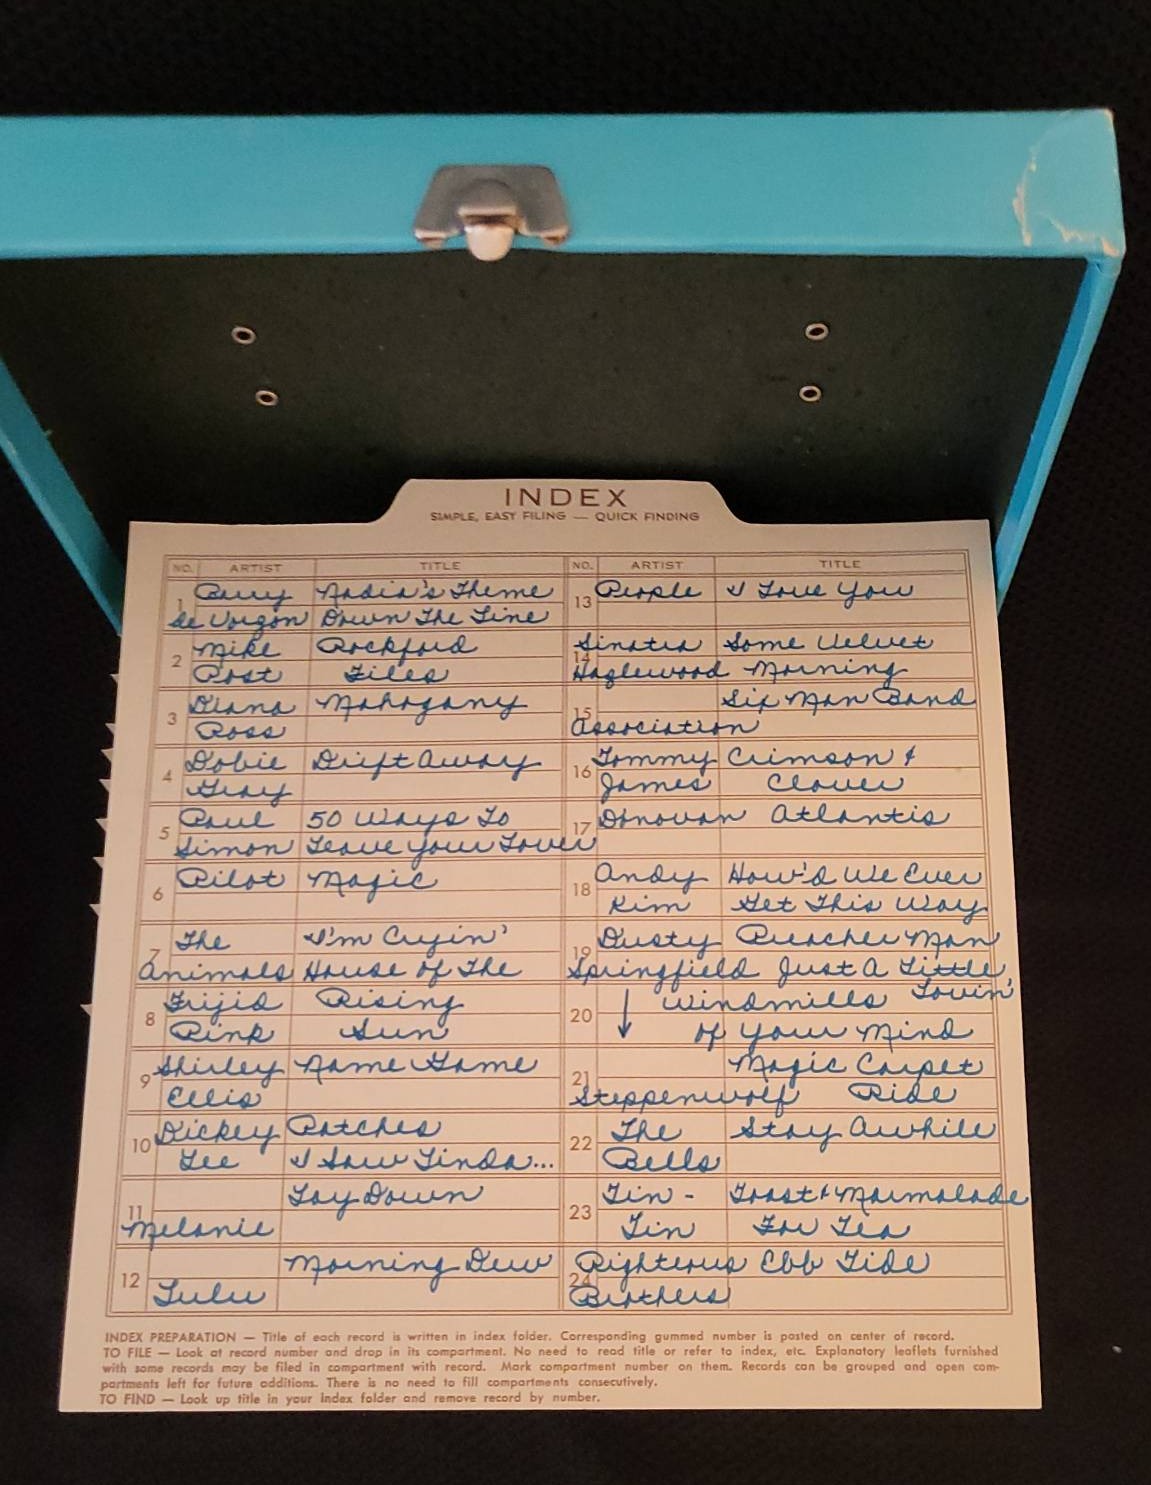 INDEX
SIMPLE, EASY FILING — QUICK FINDING
NO. ARTIST TITLE
1 Perry Nadia's Theme
de Vorzon Down The Line
2 Mike Rockford
Post Files
3 Diana Mahogany
Ross
4 Dobie Drift Away
Gray
5 Paul 50 Ways To
Simon Leave your Lover
6 Pilot Magic
7 The I'm Cryin'
Animals House of The
8 Frijid Rising
Pink Sun
9 Shirley Name Game
Ellis
10 Dickey Patches
Lee I Saw Linda...
11 Lay Down
Melanie
12 Morning Dew
Lulu
NO. ARTIST TITLE
13 People I Love You
14 Sinatra Some Velvet
Hazlewood Morning
15 Six Man Band
Association
16 Tommy Crimson &
James Clover
17 Donovan Atlantis
18 Andy How'd We Ever
Kim Get This Way
19 Dusty Preacher Man
Springfield Just A Little
Lovin'
20 ↓ Windmills
of your Mind
21 Magic Carpet
Steppenwolf Ride
22 The Stay Awhile
Bells
23 Tin - Toast & Marmalade
Tin For Tea
24 Righteous Ebb Tide
Brothers
INDEX PREPARATION — Title of each record is written in index folder. Corresponding gummed number is posted on center of record.
TO FILE — Look at record number and drop in its compartment. No need to read title or refer to index, etc. Explanatory leaflets furnished
with some records may be filed in compartment with record. Mark compartment number on them. Records can be grouped and open com-
partments left for future additions. There is no need to fill compartments consecutively.
TO FIND — Look up title in your index folder and remove record by number.